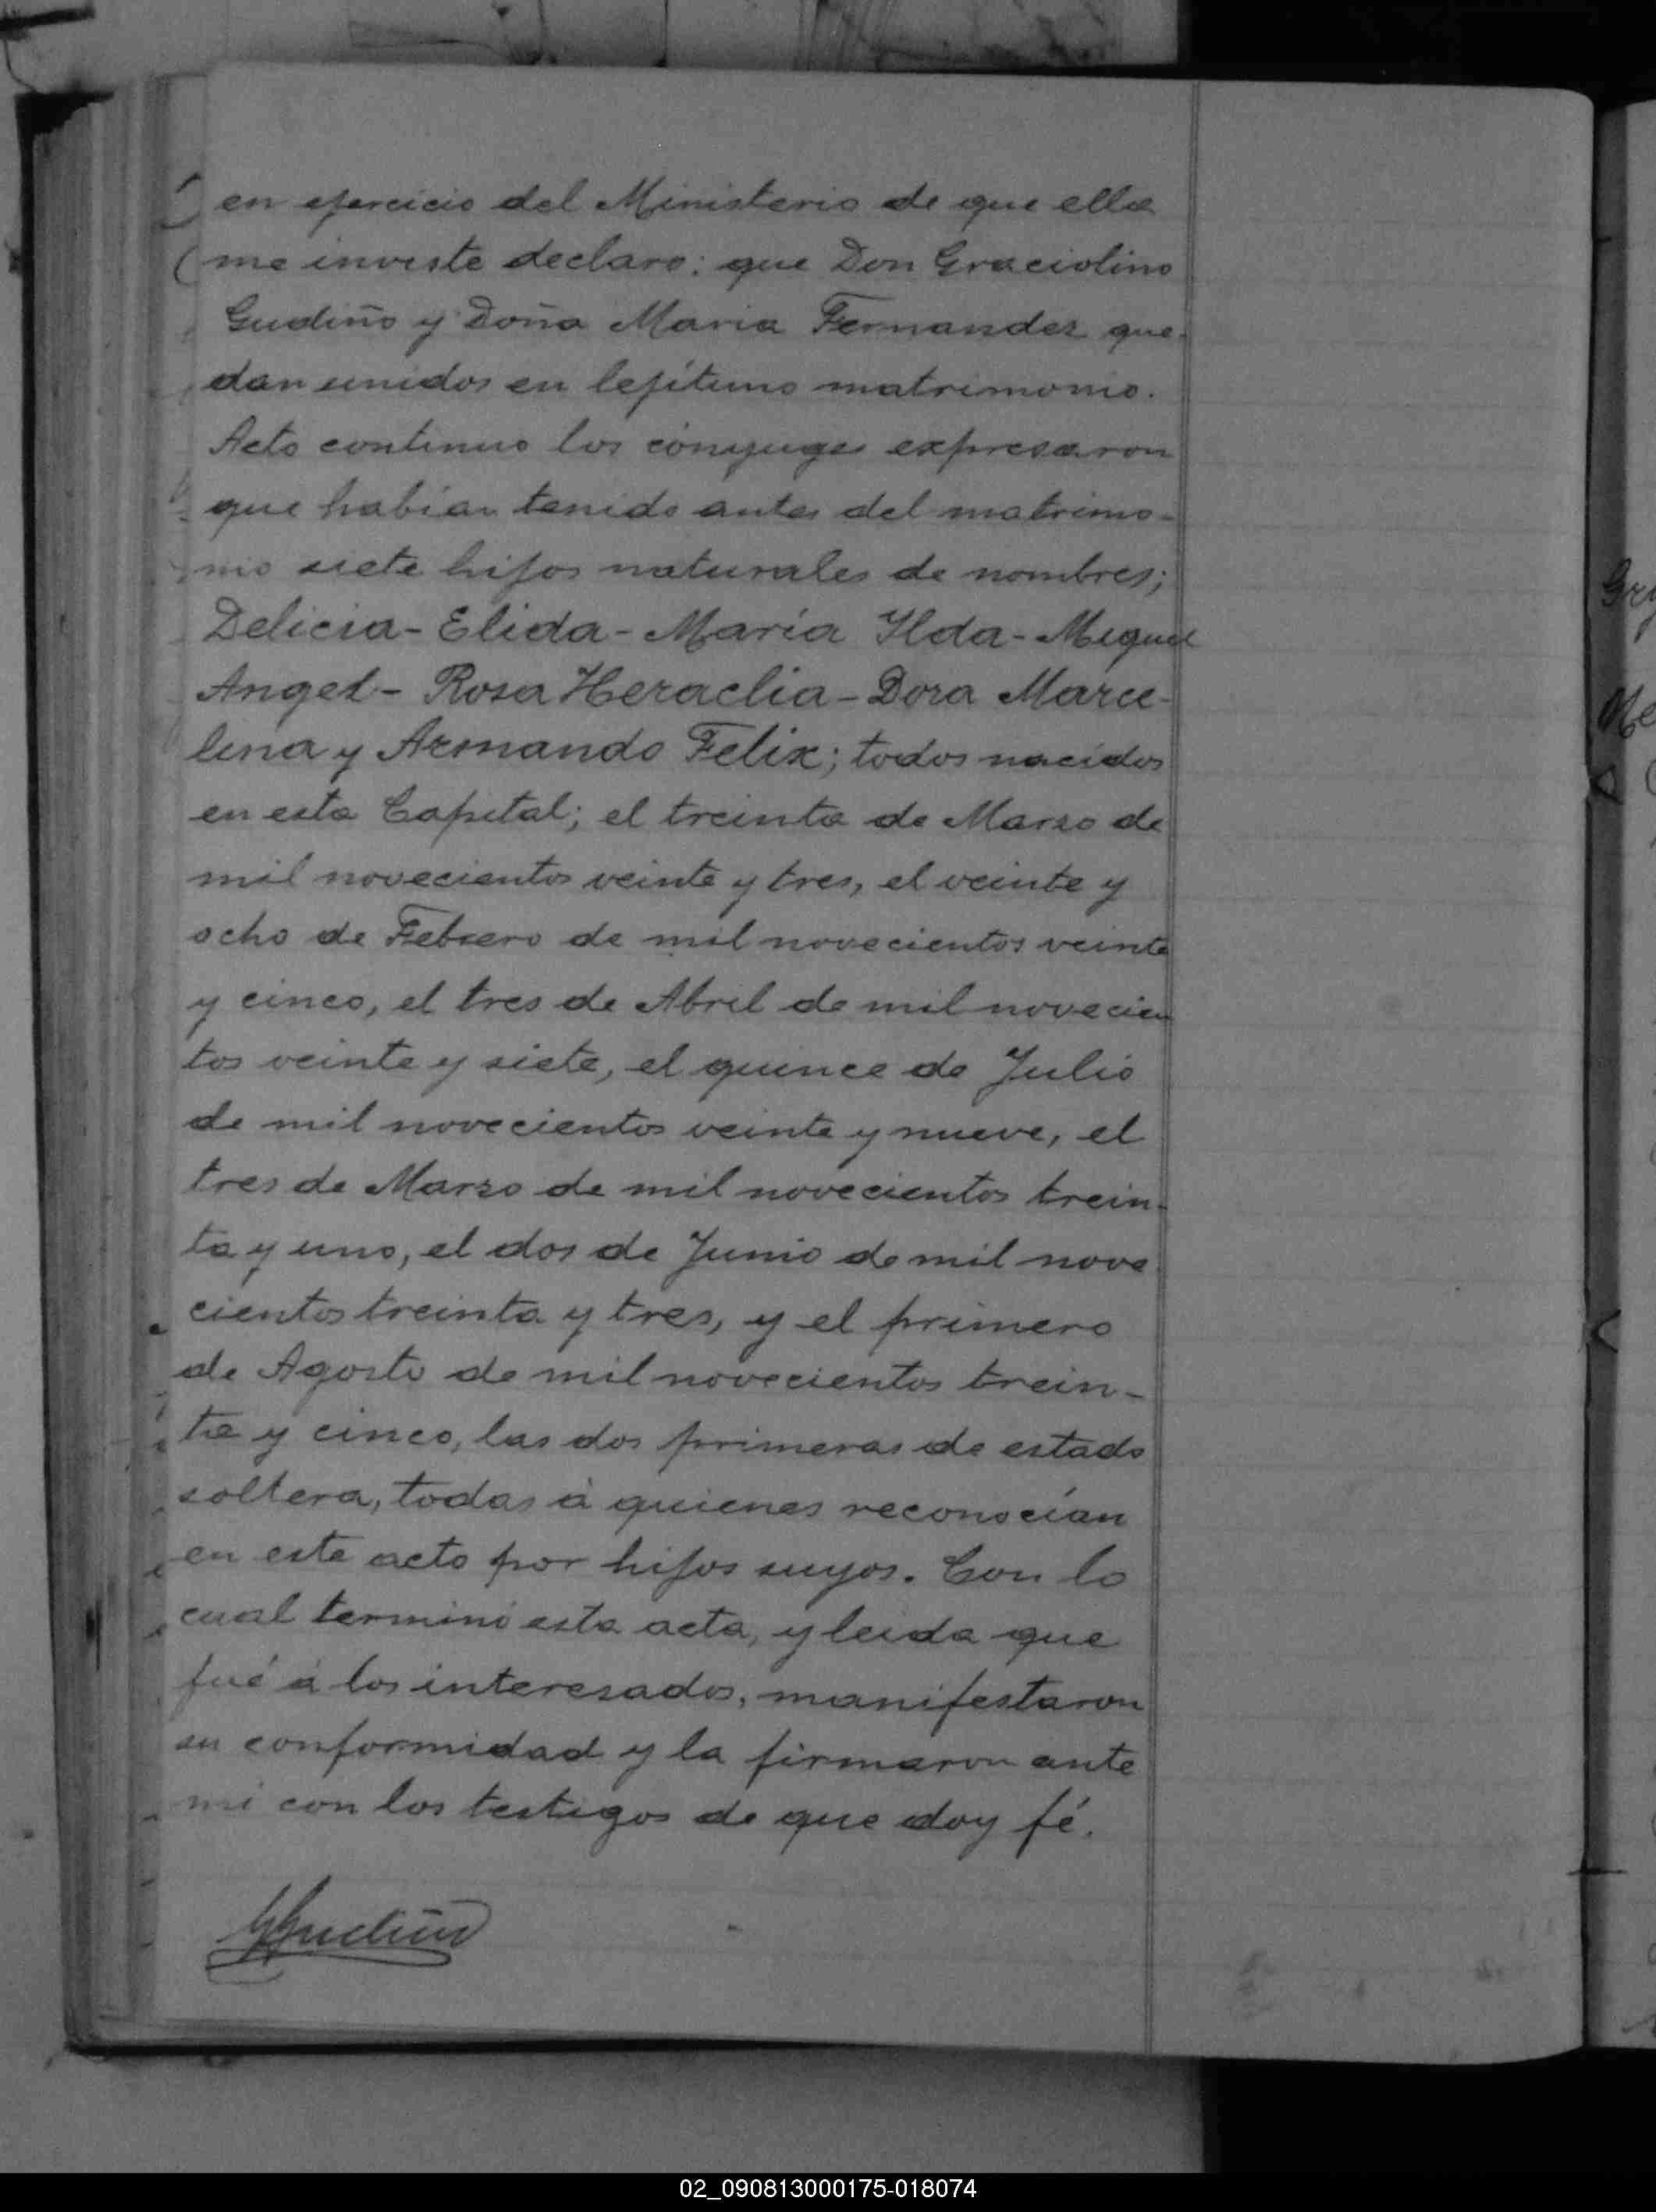 en ejercicio del Ministerio de que ella
me inviste declaro: que Don Graciolino
Gudiño y Doña Maria Fernandez que-
dan unidos en lejítimo matrimonio.
Acto continuo los cónyuges expresaron
que habían tenido antes del matrimo-
nio siete hijos naturales de nombres;
Delicia - Elida - María Ilda - Miguel
Angel - Rosa Heraclia - Dora Marce-
lina y Armando Felix; todos nacidos
en esta Capital; el treinta de Marzo de
mil novecientos veinte y tres, el veinte y
ocho de Febrero de mil novecientos veinte
y cinco, el tres de Abril de mil novecien
tos veinte y siete, el quince de Julio
de mil novecientos veinte y nueve, el
tres de Marzo de mil novecientos trein-
ta y uno, el dos de Junio de mil nove
cientos treinta y tres, y el primero
de Agosto de mil novecientos trein-
ta y cinco, las dos primeras de estado
soltera, todas á quienes reconocían
en este acto por hijos suyos. Con lo
cual terminó esta acta, y leida que
fué á los interesados, manifestaron
su conformidad y la firmaron ante
mi con los testigos de que doy fé.
GGudiño
02_090813000175-018074